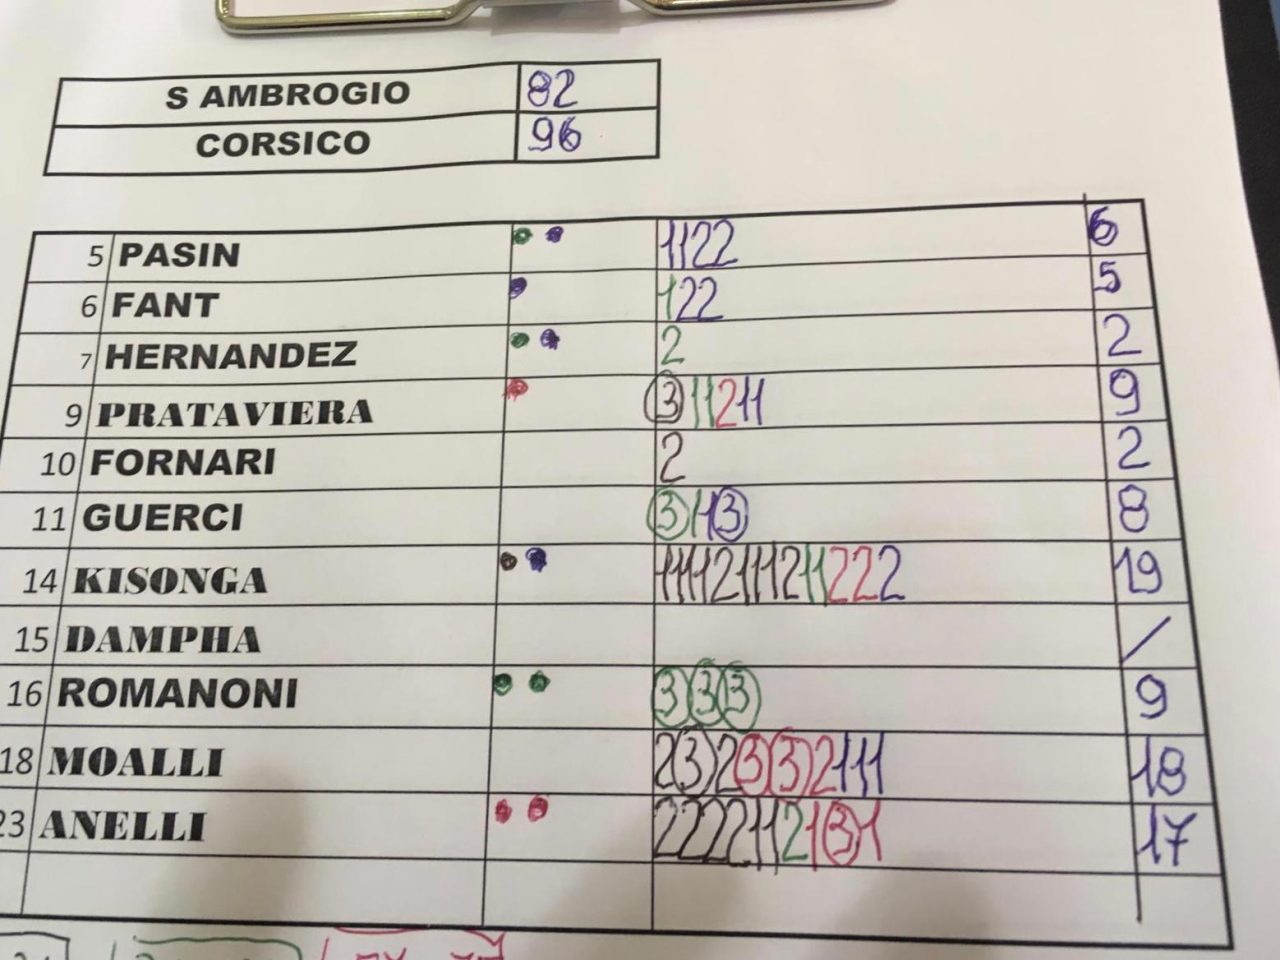 S AMBROGIO 82
CORSICO 96
5 PASIN 1122 6
6 FANT 122 5
7 HERNANDEZ 2 2
9 PRATAVIERA 311211 9
10 FORNARI 2 2
11 GUERCI 3113 8
14 KISONGA 11112111211222 19
15 DAMPHA /
16 ROMANONI 333 9
18 MOALLI 232332111 18
23 ANELLI 2222112131 17